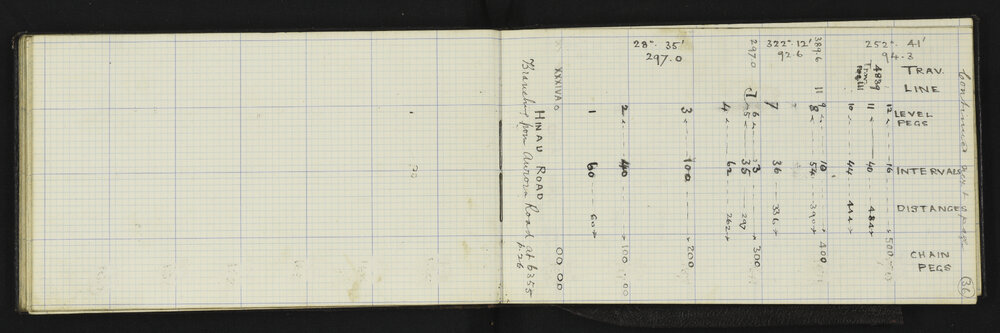 Continued next page
36
TRAV. LINE
LEVEL PEGS
INTERVALS
DISTANCES
CHAIN PEGS
252° 41'
94.3
4839
12 16 500
11 40 484
10 44 444
389.6
11
322° 12'
92.6
9 10 400
8 54 390
7 36 336
297.0
6 3 300
5 35 297
4 62 262
28° 35'
297.0
3 100 200
2 40 100
1 60 60
XXXIVA 00 00
HINAU ROAD
Branching from Aurora Road at 6355
p.26